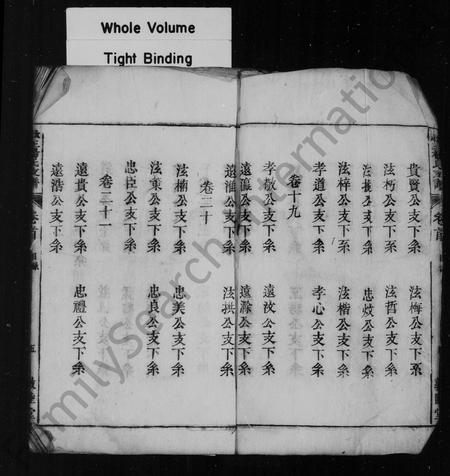 Whole Volume
Tight Binding
貴賢公支下系 泫梅公支下系
泫朽公支下系 泫哲公支下系
公支下系 忠炆公支下系
泫梓公支下系 泫楷公支下系
孝道公支下系 孝心公支下系
卷十九
孝敬公支下系 遠汶公支下系
遠瀛公支下系 遠滁公支下系
遠淮公支下系 泫拱公支下系
卷二十
泫楠公支下系 忠美公支下系
泫東公支下系 忠良公支下系
忠臣公支下系
卷二十一
遠貴公支下系 忠禮公支下系
遠浩公支下系
卷首
FamilySearch International